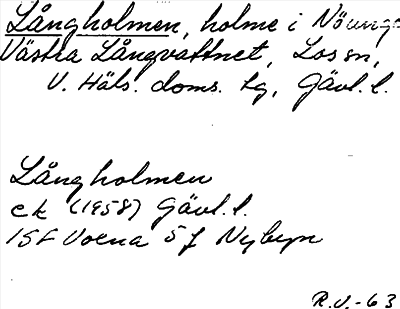 Långholmen, holme i Nö
Västra Långvattnet, Los sn,
V. Häls. doms. tg, Gävl. l.
Långholmen
ek (1958) Gävl. l.
15F Voxna 5 f Nybyn
R.V.-63